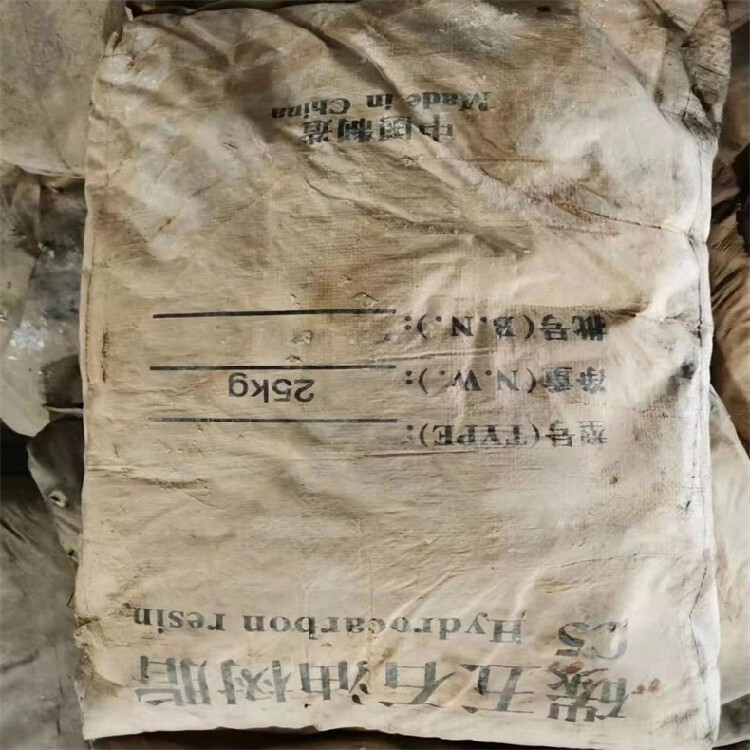 碳五石油树脂
C5 Hydrocarbon resin
型号(TYPE):
净重(N.W.): 25kg
批号(B.N.):
中国制造
Made in China